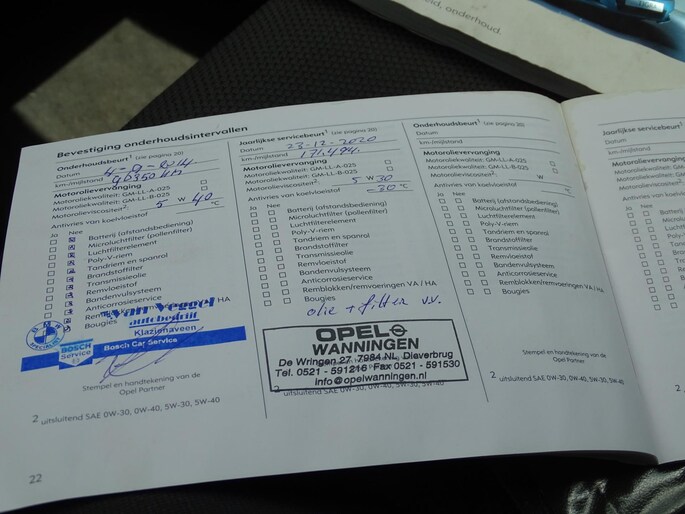 eid, onderhoud.
Bevestiging onderhoudsintervallen
Onderhoudsbeurt¹ (zie pagina 20)
Datum 4-8-2014
km-/mijlstand
Motorolievervanging
Motoroliekwaliteit: GM-LL-A-025
Motoroliekwaliteit: GM-LL-B-025
Motorolieviscositeit²: 5 W 40
Antivries van koelvloeistof °C
Ja Nee
Batterij (afstandsbediening)
Microluchtfilter (pollenfilter)
Luchtfilterelement
Poly-V-riem
Tandriem en spanrol
Brandstoffilter
Transmissieolie
Remvloeistof
Bandenvulsysteem
Anticorrosieservice
HA
Bougies
Van Veggel
autobedrijf
Klazienaveen
BOSCH
Service
Bosch Car Service
Stempel en handtekening van de
Opel Partner
2 uitsluitend SAE 0W-30, 0W-40, 5W-30, 5W-40
22
Jaarlijkse servicebeurt¹ (zie pagina 20)
Datum 23-12-2020
km-/mijlstand 171.494.
Motorolievervanging
Motoroliekwaliteit: GM-LL-A-025
Motoroliekwaliteit: GM-LL-B-025
Motorolieviscositeit²: 5 W 30
Antivries van koelvloeistof -30 °C
Ja Nee
Batterij (afstandsbediening)
Microluchtfilter (pollenfilter)
Luchtfilterelement
Poly-V-riem
Tandriem en spanrol
Brandstoffilter
Transmissieolie
Remvloeistof
Bandenvulsysteem
Anticorrosieservice
Remblokken/remvoeringen VA / HA
Bougies
olie + filter vv.
OPEL
WANNINGEN
De Wringen 27, 7984 NL Dieverbrug
Tel. 0521 - 591216 Fax 0521 - 591530
info@opelwanningen.nl
2 uitsluitend SAE 0W-30, 0W-40, 5W-30, 5W-40
Onderhoudsbeurt¹ (zie pagina 20)
Datum
km-/mijlstand
Motorolievervanging
Motoroliekwaliteit: GM-LL-A-025
Motoroliekwaliteit: GM-LL-B-025
Motorolieviscositeit²: W
Antivries van koelvloeistof °C
Ja Nee
Batterij (afstandsbediening)
Microluchtfilter (pollenfilter)
Luchtfilterelement
Poly-V-riem
Tandriem en spanrol
Brandstoffilter
Transmissieolie
Remvloeistof
Bandenvulsysteem
Anticorrosieservice
Remblokken/remvoeringen VA / HA
Bougies
Stempel en handtekening van de
Opel Partner
2 uitsluitend SAE 0W-30, 0W-40, 5W-30, 5W-40
Jaarlijkse se
Datum
km-/mijlstand
Motorolieve
Motoroliekw
Motoroliekw
Motorolievis
Antivries va
Ja Nee